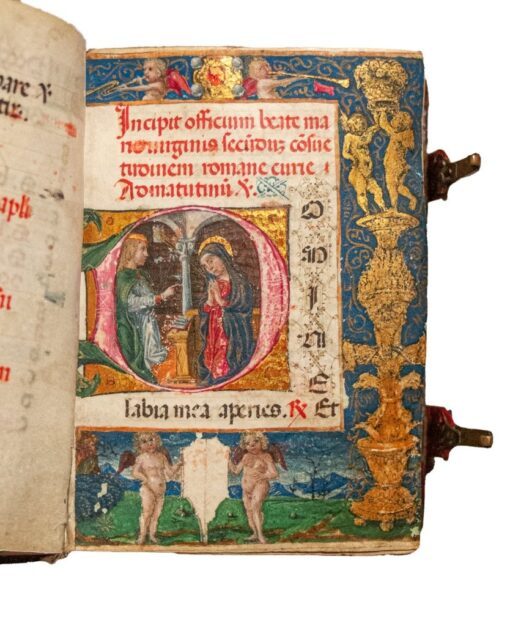 pare ỿ
Incipit officium beate ma
rie uirginis secūduȝ cōsue
tudinem romane curie
Ad matutinū ỿ.
DOMINE
labia mea aperies. ℞ Et